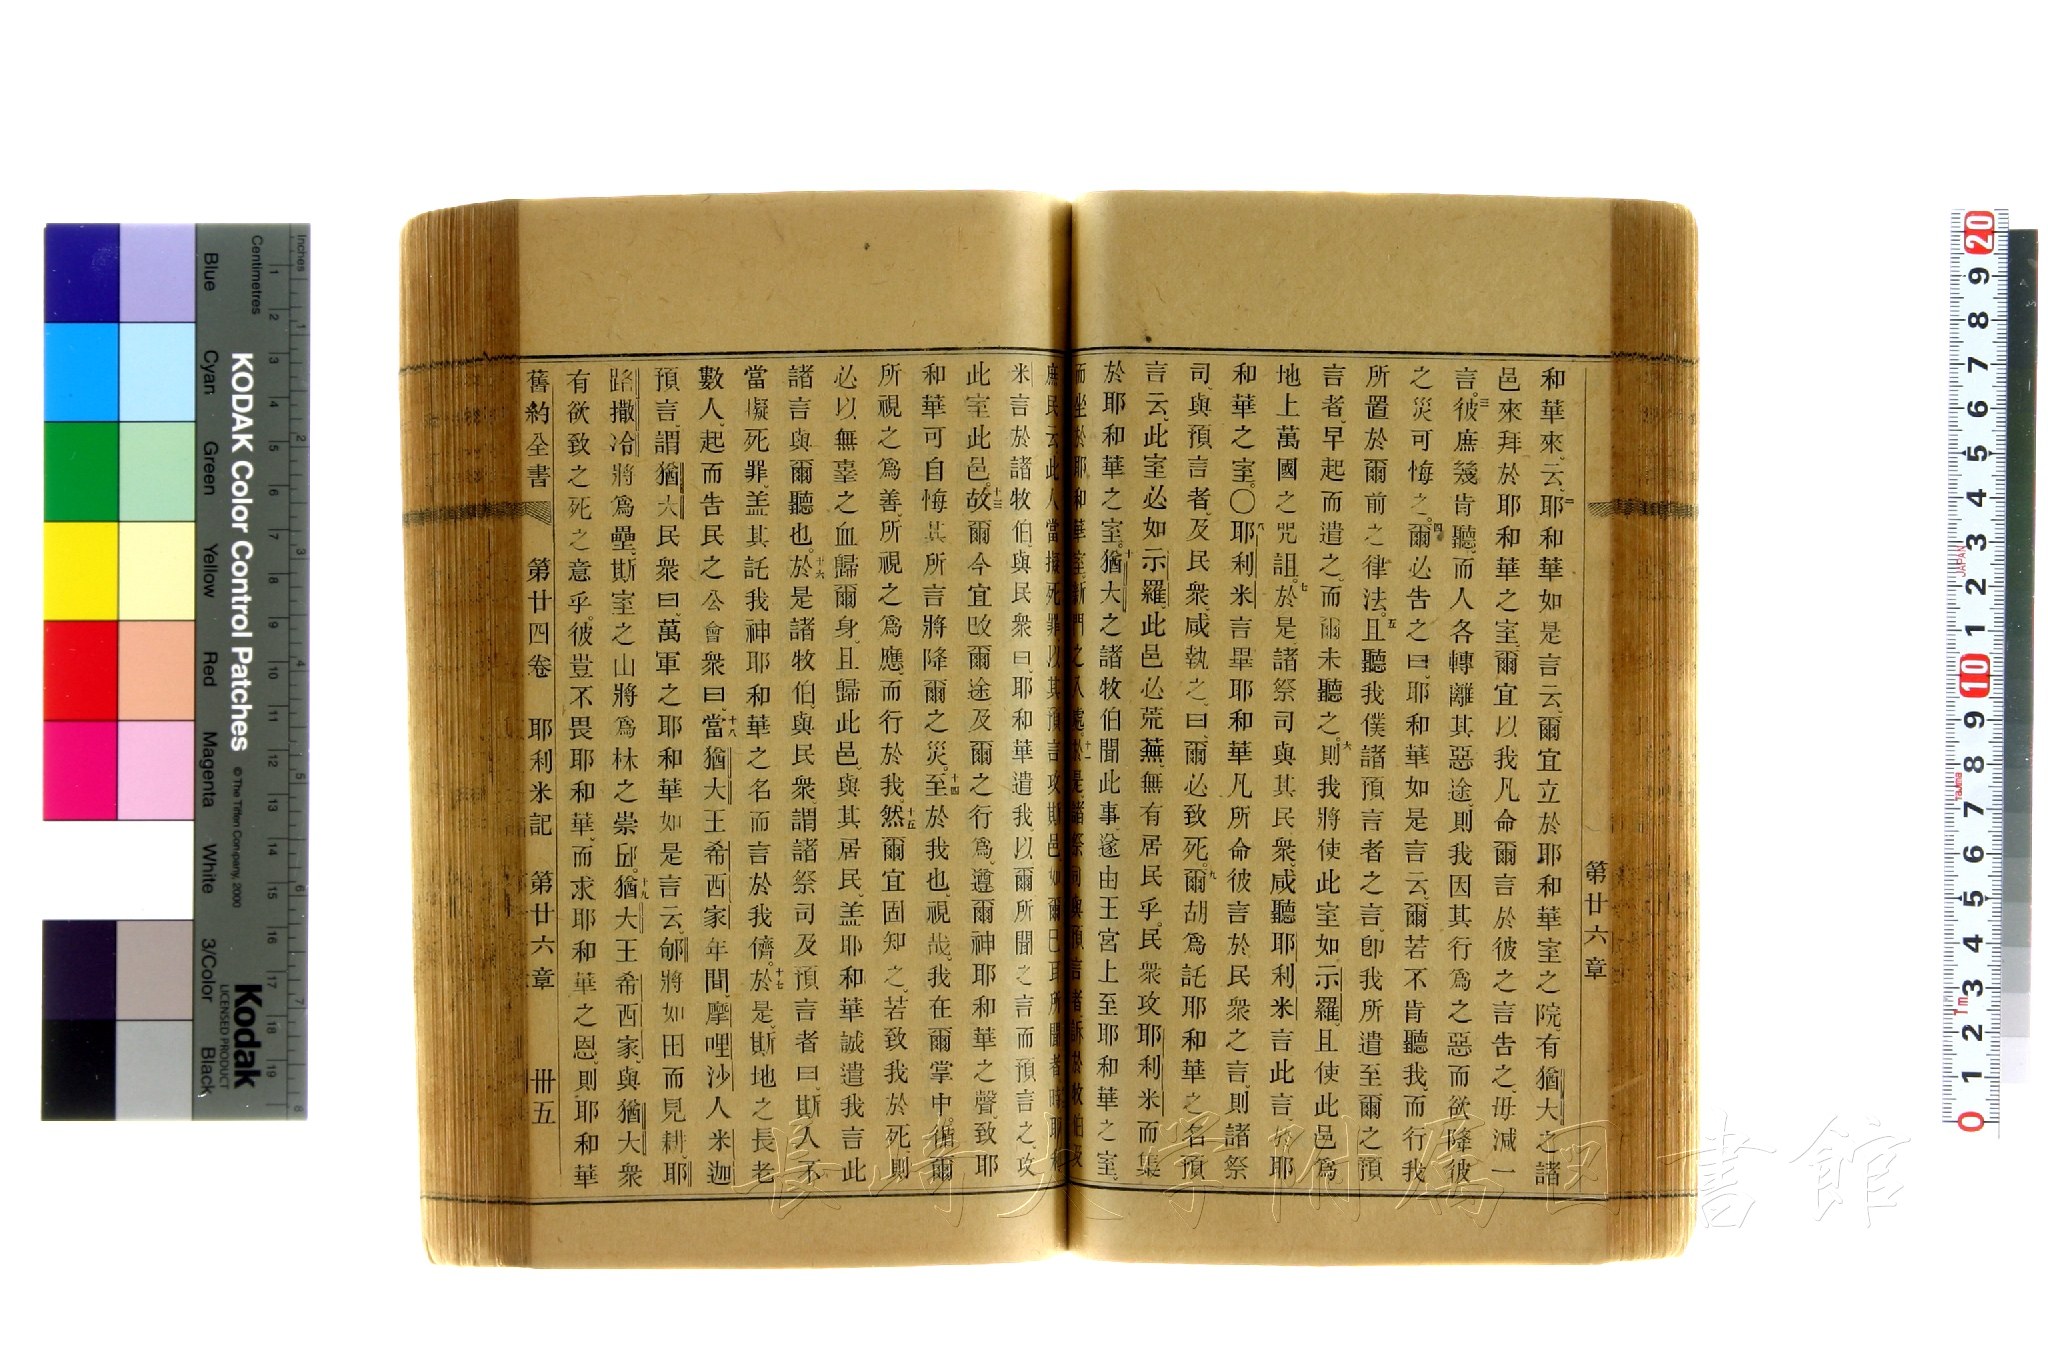 第廿六章
和華來云、耶和華如是言云、爾宜立於耶和華室之院、有猶大之諸
邑來拜於耶和華之室、爾宜以我凡命爾言於彼之言告之、毋減一
言。彼庶幾肯聽、而人各轉離其惡途、則我因其行爲之惡而欲降彼
之災可悔之。爾必告之曰、耶和華如是言云、爾若不肯聽我、而行我
所置於爾前之律法。且聽我僕諸預言者之言、卽我所遣至爾之預
言者、早起而遣之、而爾未聽之。則我將使此室如示羅、且使此邑爲
地上萬國之咒詛。於是諸祭司與其民衆、咸聽耶利米言此言、於耶
和華之室。○耶利米言畢耶和華凡所命彼言於民衆之言、則諸祭
司、與預言者、及民衆、咸執之、曰、爾必致死。爾胡爲託耶和華之名預
言云、此室必如示羅、此邑必荒蕪、無有居民乎。民衆攻耶利米而集
於耶和華之室。猶大之諸牧伯聞此事、遂由王宮上至耶和華之室、
而坐於耶和華室新門之入處。於是諸祭司與預言者訴於牧伯及
庶民云、此人當擬死罪、以其預言攻斯邑、如爾己耳所聞者。時耶利
米言於諸牧伯、與民衆曰、耶和華遣我、以爾所聞之言而預言之、攻
此室此邑。故爾今宜改爾途及爾之行爲、遵爾神耶和華之聲、致耶
和華可自悔其所言將降爾之災。至於我也、視哉、我在爾掌中。循爾
所視之爲善、所視之爲應、而行於我。然爾宜固知之、若致我於死、則
必以無辜之血歸爾身、且歸此邑、與其居民、盖耶和華誠遣我言此
諸言與爾聽也。於是諸牧伯、與民衆、謂諸祭司及預言者曰、斯人不
當擬死罪、盖其託我神耶和華之名而言於我儕。於是斯地之長老
數人、起而告民之公會衆曰、當猶大王希西家年間、摩哩沙人米迦
預言、謂猶大民衆曰、萬軍之耶和華如是言云、郇將如田而見耕、耶
路撒冷將爲壘、斯室之山將爲林之崇邱。猶大王希西家、與猶大衆
有欲致之死之意乎。彼豈不畏耶和華、而求耶和華之恩、則耶和華
舊約全書 第廿四卷 耶利米記 第廿六章 卅五
KODAK Color Control Patches © The Tiffen Company, 2000
Kodak
LICENSED PRODUCT
Inches
Centimetres
Blue Cyan Green Yellow Red Magenta White 3/Color Black
長崎大学附属図書館